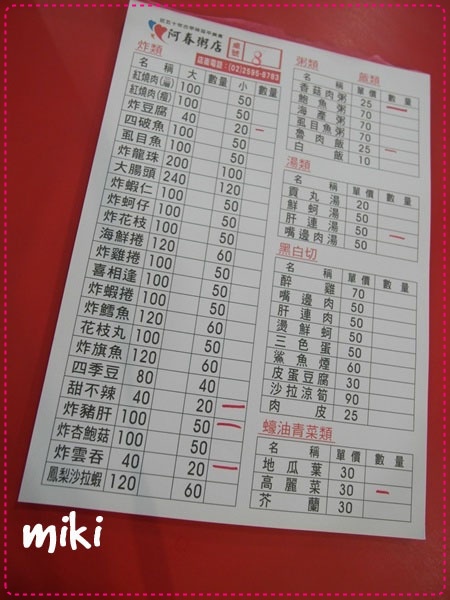 阿春粥店
桌號 8
店面電話：(02)2585-8763
炸類
名稱 大 數量 小 數量
紅燒肉 100 50
紅燒肉(瘦) 100 50
炸豆腐 40 20 一
四破魚 100 50
虱目魚 100 50
炸龍珠 200 100
大腸頭 240 120
炸蝦仁 100 50
炸蚵仔 100 50
炸花枝 100 50
海鮮捲 120 60
炸雞捲 100 50
喜相逢 100 50
炸蝦捲 100 50
炸鱈魚 120 60
花枝丸 100 50
炸旗魚 120 60
四季豆 80 40
甜不辣 40 20 一
炸豬肝 100 50 一
炸杏鮑菇 100 50
炸雲吞 40 20 一
鳳梨沙拉蝦 120 60
粥類 飯類
名稱 單價 數量
香菇肉粥 25 一
鮑魚粥 70
海產粥 70
虱目魚粥 70
魯肉飯 25 一
白飯 10
湯類
名稱 單價 數量
貢丸湯 20
鮮蚵湯 50
肝連湯 50
嘴邊肉湯 50 一
黑白切
名稱 單價 數量
醉雞 70
嘴邊肉 50
肝連肉 50
燙鮮蚵 50
三色蛋 50
鯊魚煙 60
皮蛋豆腐 30
沙拉涼筍 90
肉皮 25
蠔油青菜類
名稱 單價 數量
地瓜葉 30
高麗菜 30 一
芥蘭 30
miki